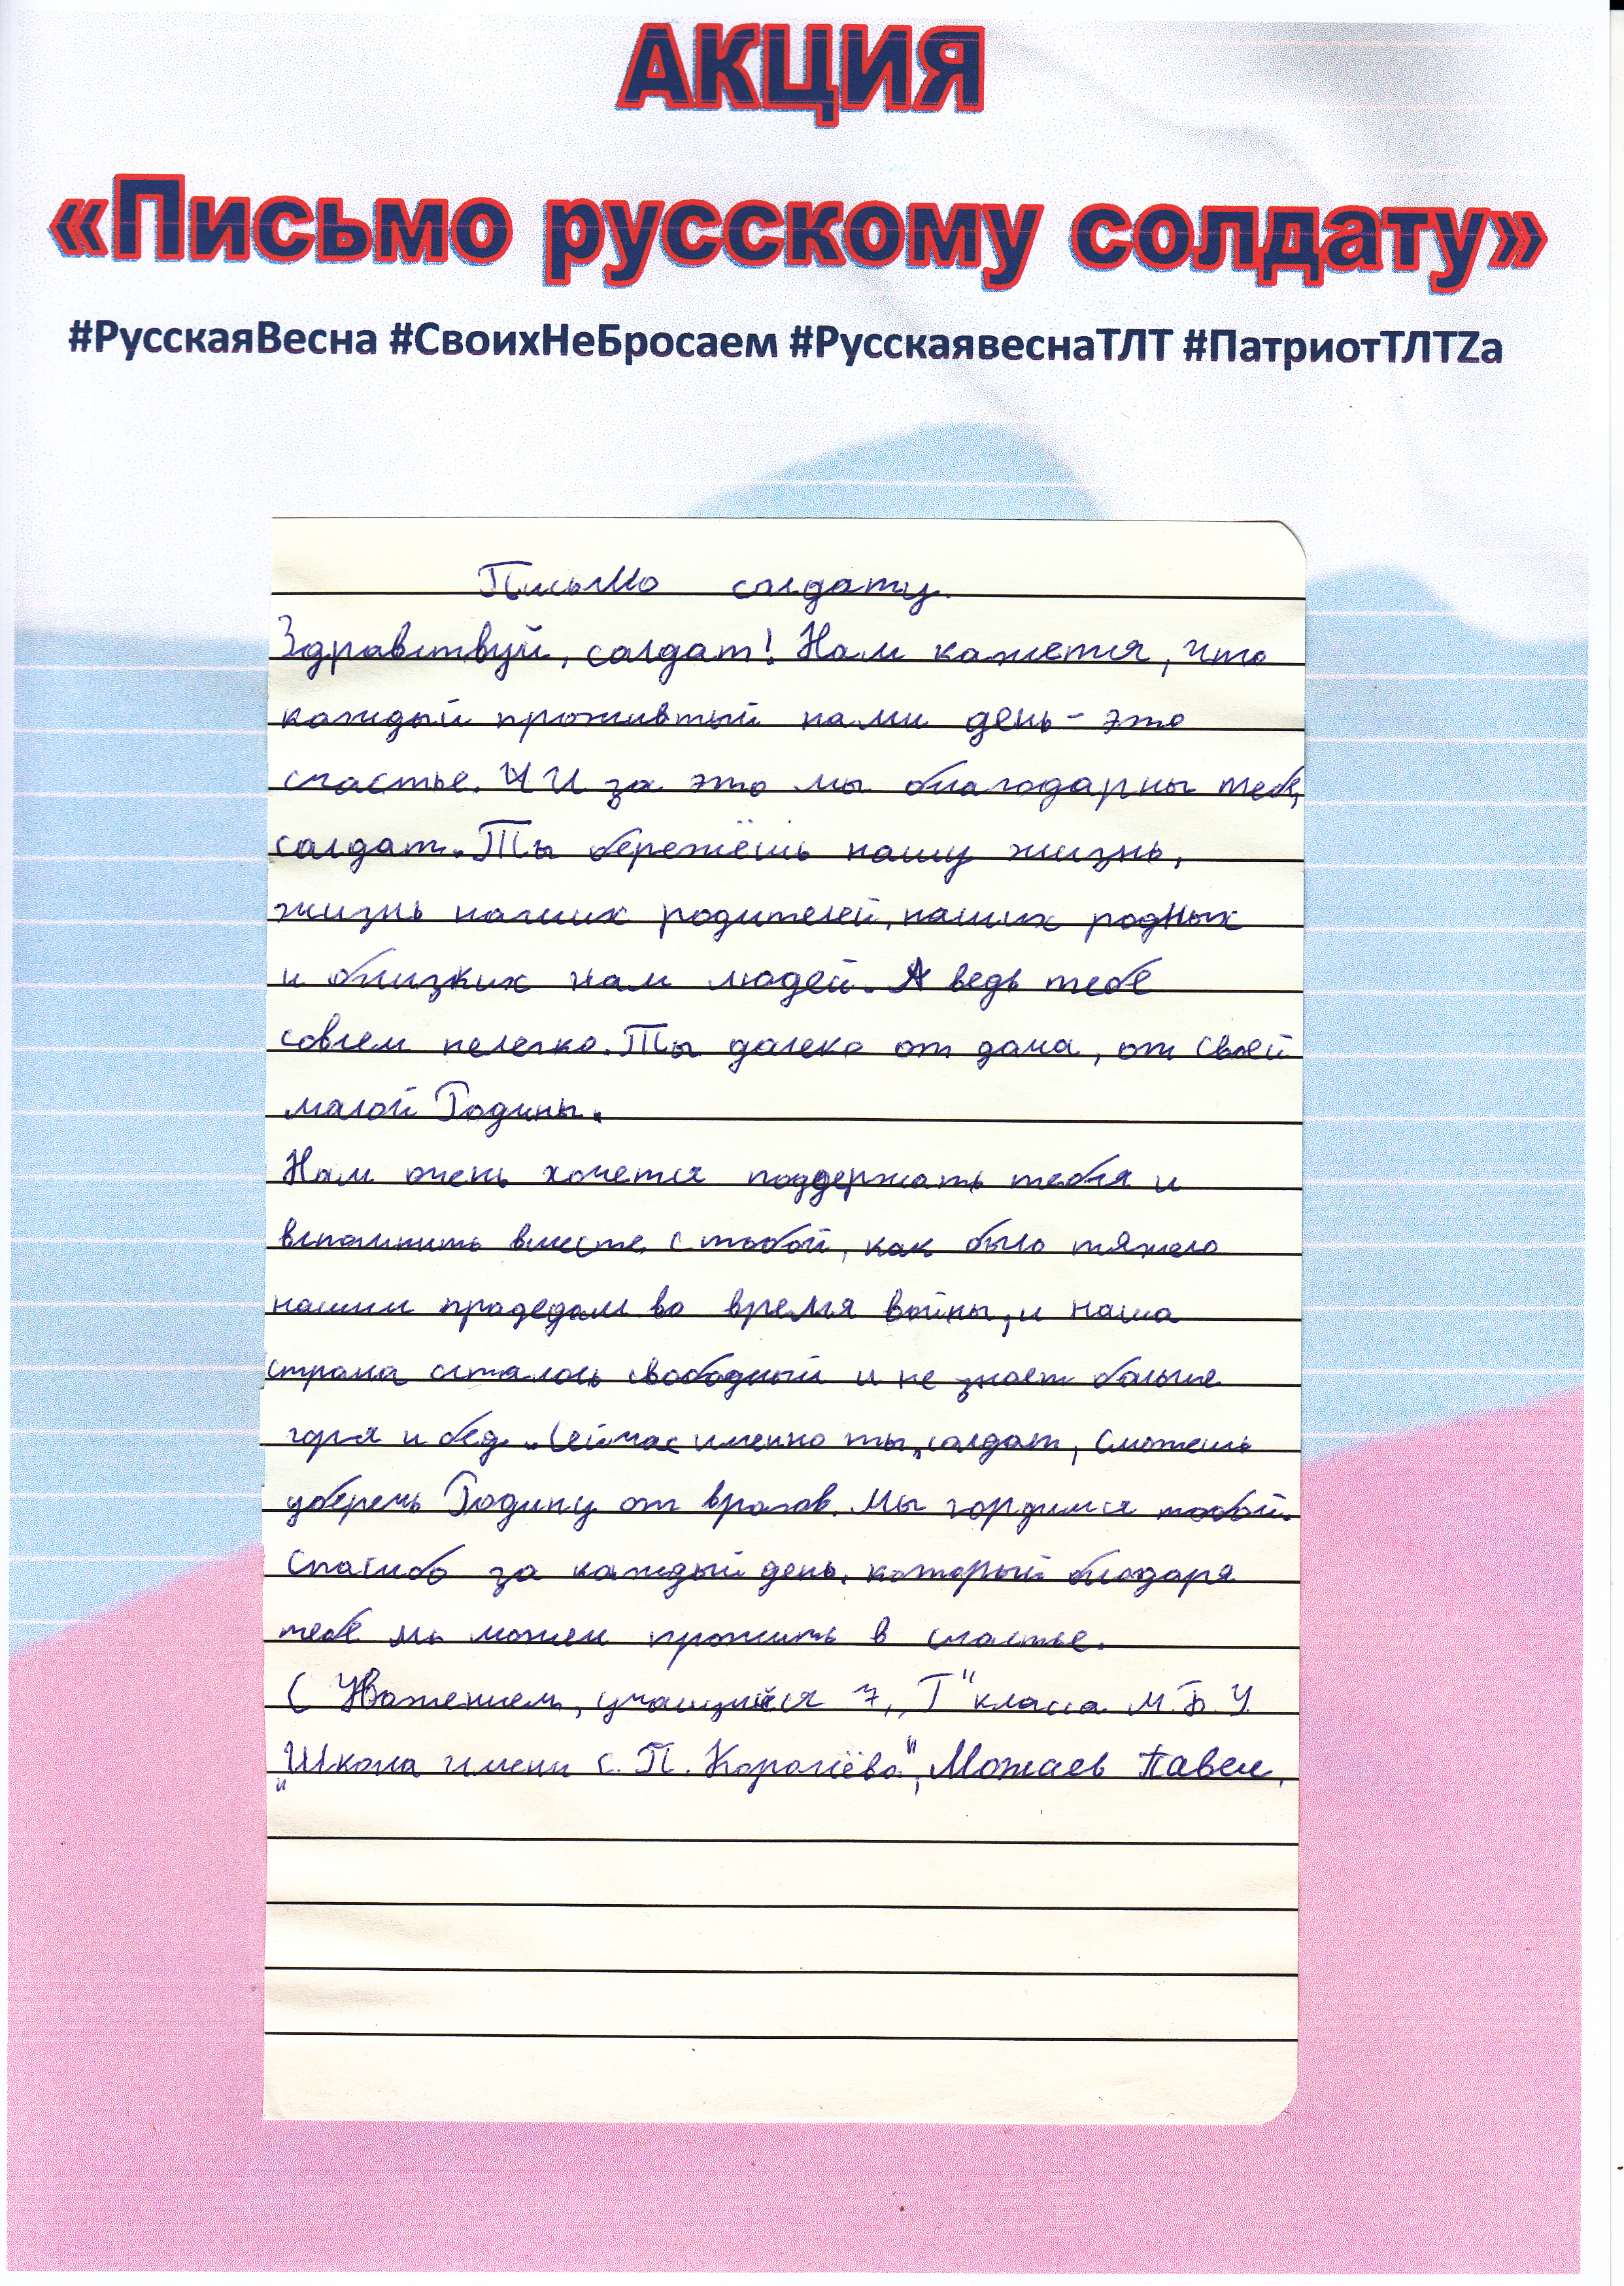 АКЦИЯ
«Письмо русскому солдату»
#РусскаяВесна #СвоихНеБросаем #РусскаявеснаТЛТ #ПатриотТЛТZа
Письмо солдату.
Здравствуй, солдат! Нам кажется, что
каждый прожитый нами день - это
счастье. И за это мы благодарны тебе,
солдат. Ты бережёшь нашу жизнь,
жизнь наших родителей, наших родных
и близких нам людей. А ведь тебе
совсем нелегко. Ты далеко от дома, от своей
малой Родины.
Нам очень хочется поддержать тебя и
вспомнить вместе с тобой, как было тяжело
нашим прадедам во время войны, и наша
страна осталась свободной и не знает больше
горя и бед. Сейчас именно ты, солдат, сможешь
уберечь Родину от врагов. Мы гордимся тобой.
Спасибо за каждый день, который благодаря
тебе мы можем прожить в счастье.
С Уважением, учащийся 7 „Г" класса М.Б.У.
„Школа имени С.П. Королёва", Можаев Павел.